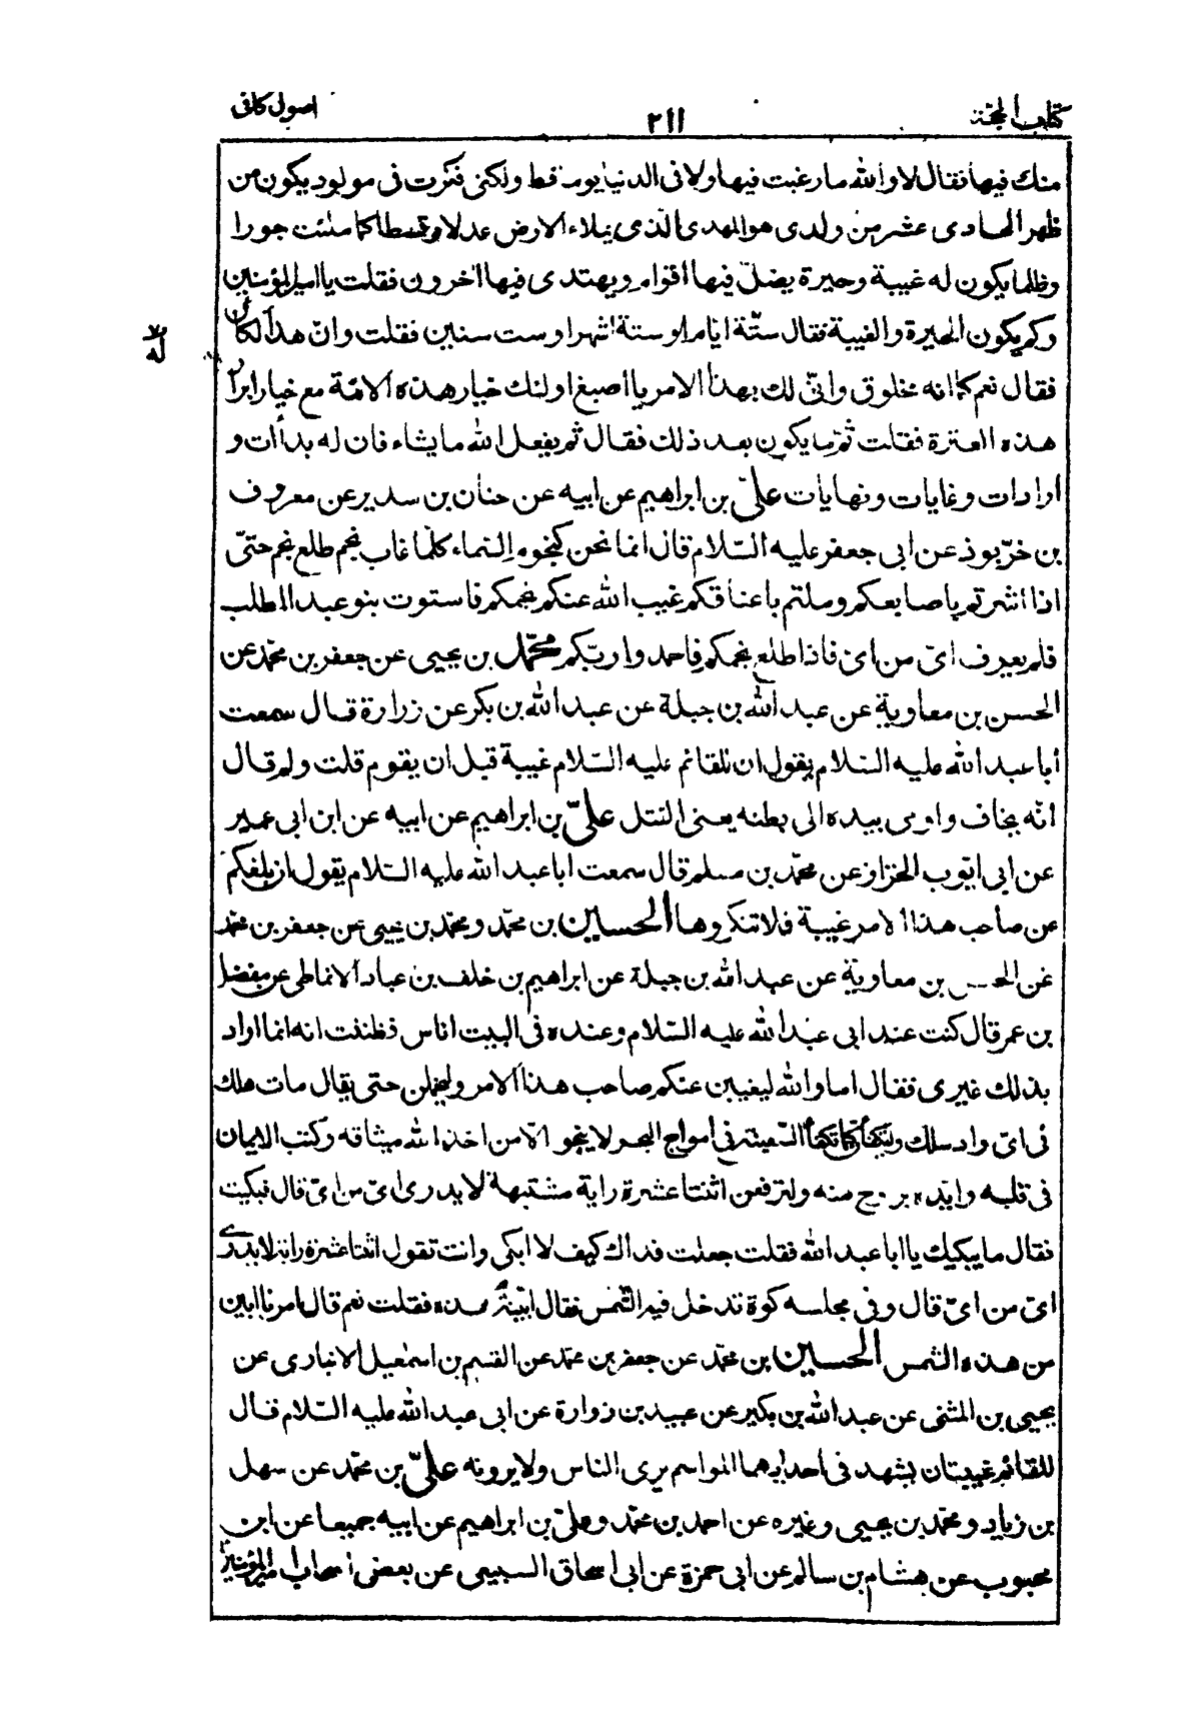 كتاب الحجة ٢١١ اصول كافى
منك فيها فقال لا والله ما رغبت فيها ولا فى الدنيا يوما قط ولكنى فكرت فى مولود يكون من
ظهر الحادى عشر من ولدى هو المهدى الذى يملاء الارض عدلا وقسطا كما ملئت جورا
وظلما يكون له غيبة وحيرة يضلّ فيها اقوام ويهتدى فيها اخرون فقلت يا امير المؤمنين
وكم يكون الحيرة والغيبة فقال ستّة ايام او ستة اشهر او ست سنين فقلت وانّ هذا لكائن
له
فقال نعم كما انه مخلوق وانّى لك بهذا الامر يا اصبغ اولئك خيار هذه الامّة مع خيار ابرار
هذه العترة فقلت ثمّ ما يكون بعد ذلك فقال ثم يفعل الله ما يشاء فان له بدأات و
ارادات وغايات ونهايات علىّ بن ابراهيم عن ابيه عن حنان بن سدير عن معروف
بن خرّبوذ عن ابى جعفر عليه السّلام قال انما نحن كنجوم السّماء كلّما غاب نجم طلع نجم حتىّ
اذا اشرتم باصابعكم وملتم باعناقكم غيب الله عنكم نجمكم فاستوت بنو عبد المطلب
فلم يعرف اىّ من اىّ فاذا طلع نجمكم فاحمدوا ربّكم محمّد بن يحيى عن جعفر بن محمّد عن
الحسن بن معاوية عن عبد الله بن جبلة عن عبد الله بن بكر عن زرارة قال سمعت
أبا عبد الله عليه السّلام يقول ان للقائم عليه السّلام غيبة قبل ان يقوم قلت ولم قال
انّه يخاف واومى بيده الى بطنه يعنى القتل علىّ بن ابراهيم عن ابيه عن ابن ابى عمير
عن ابى ايّوب الخزاز عن محمّد بن مسلم قال سمعت ابا عبد الله عليه السّلام يقول ان بلغكم
عن صاحب هذا الامر غيبة فلا تنكروها الحسين بن محمّد ومحمّد بن يحيى عن جعفر بن محمّد
عن الحسن بن معاوية عن عبد الله بن جبلة عن ابراهيم بن خلف بن عباد الانماطى عن مفضل
بن عمر قال كنت عند ابى عبد الله عليه السّلام وعنده فى البيت اناس فظننت انه انما اراد
بذلك غيرى فقال اما والله ليغيبن عنكم صاحب هذا الامر وليخملن حتى يقال مات هلك
فى اىّ واد سلك ولتكفأن كما تكفأ السّفينة فى امواج البحر لا ينجو الّا من اخذ الله ميثاقه وكتب الايمان
فى قلبه وايّده بروح منه ولترفعن اثنتا عشرة راية مشتبهة لا يدرى اىّ من اىّ قال فبكيت
فقال ما يبكيك يا ابا عبد الله فقلت جعلت فداك كيف لا ابكى وانت تقول اثنتا عشرة راية لا يدرى
اىّ من اىّ قال وفى مجلسه كوة تدخل فيها الشّمس فقال ابيّنة هذه فقلت نعم قال امرنا ابين
من هذه الشمس الحسين بن محمّد عن جعفر بن محمّد عن القسم بن اسمعيل الانبارى عن
يحيى بن المثنى عن عبد الله بن بكير عن عبيد بن زرارة عن ابى عبد الله عليه السّلام قال
للقائم غيبتان يشهد فى احداهما المواسم يرى الناس ولا يرونه علىّ بن محمّد عن سهل
بن زياد ومحمّد بن يحيى وغيره عن احمد بن محمّد وعلىّ بن ابراهيم عن ابيه جميعا عن ابن
محبوب عن هشام بن سالم عن ابى حمزة عن ابى اسحاق السبيعى عن بعض اصحاب امير المؤمنين